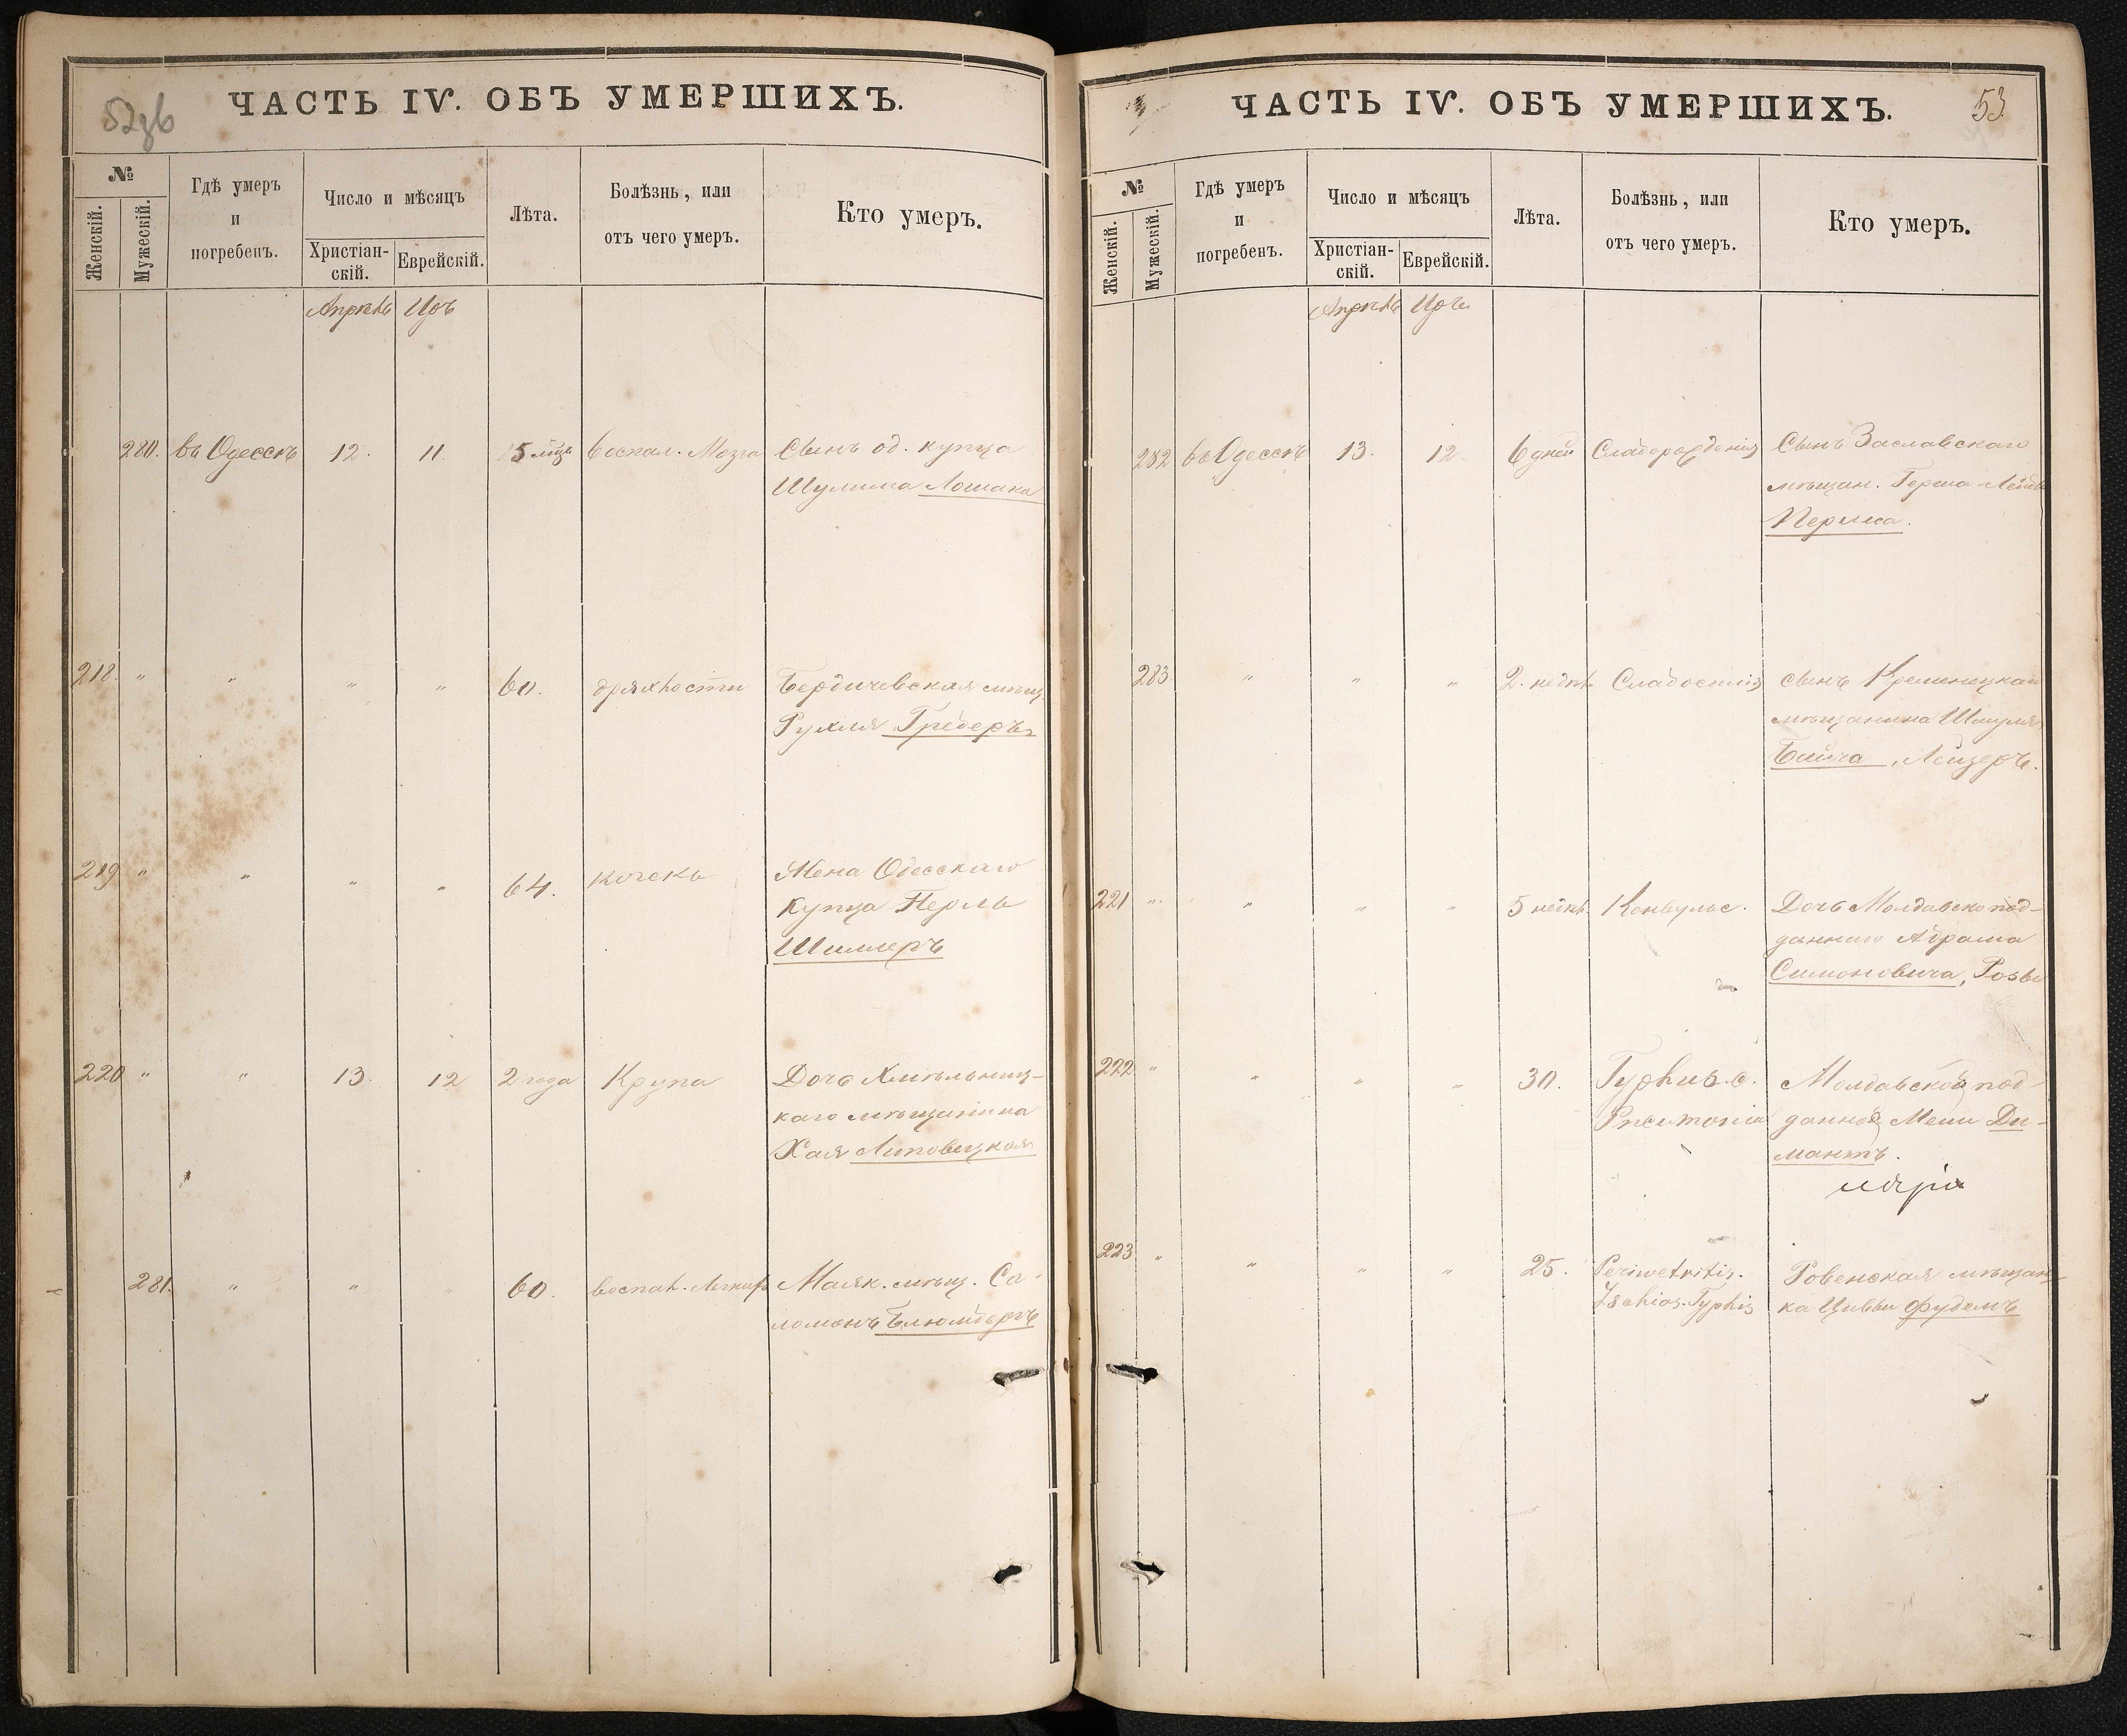 52зб
ЧАСТЬ IV. ОБЪ УМЕРШИХЪ.
№
Женскій.
Мужескій.
Гдѣ умеръ
и
погребенъ.
Число и мѣсяцъ
Христіан-
скій.
Еврейскій.
Лѣта.
Болѣзнь, или
отъ чего умеръ.
Кто умеръ.
Апрѣль Іоръ
280. въ Одессѣ 12. 11. 5 мѣц. воспал. Мозга Сынъ од. купца
Шулима Лошака
218. " " " " 60. дряхлости Бердичевская мѣщ.
Рухля Гредеръ
219 " " " " 64. Жена Одесскаго
Купца Перль
Шиллеръ
220 " " 13. 12 2 года Крупа Дочь Хмѣльниц-
каго мѣщанина
Хая Липовецкая
281. " " " 60. воспал. Легких Маяк. мѣщ. Со-
ломонъ Блюмбергъ
ЧАСТЬ IV. ОБЪ УМЕРШИХЪ.
53
№
Женскій.
Мужескій.
Гдѣ умеръ
и
погребенъ.
Число и мѣсяцъ
Христіан-
скій.
Еврейскій.
Лѣта.
Болѣзнь, или
отъ чего умеръ.
Кто умеръ.
Апрѣль Іоръ
282 въ Одессѣ 13. 12. 6 дней Слаборожденія Сынъ Заславскаго
мѣщан. Герша-Лейб
Перлиса.
283 " " " 2. недѣл. Слабосилія сынъ Кременецкаго
мѣщанина Шмуля
, Лейзеръ.
221 " " " " 5 недѣл. Конвульс. Дочь Молдавско под-
даннаго Абрама
Симоновича, Розы
222 " " " " 30. Typhus. c. Молдавской под-
Pneumonia данной Мени Ди-
мантъ.
223 " " " " 25. Perimetritis. Ровенская мѣщан-
Typhis ка Цивьи Фудемъ